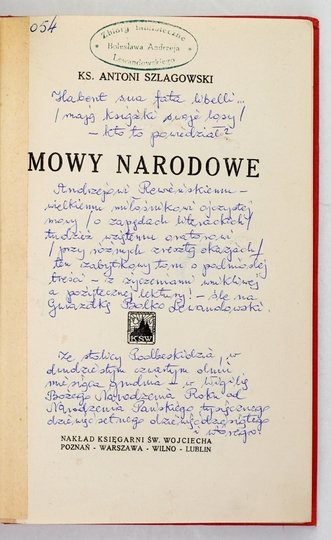 054
Zbiory biblioteczne
Bolesława Andrzeja
Lewandowskiego
KS. ANTONI SZLAGOWSKI
Habent sua fata libelli...
/mają książki swoje losy/
- kto to powiedział?
MOWY NARODOWE
Andrzejowi Rewańskiemu -
wielkiemu miłośnikowi ojczystej
mowy /o zapędach literackich/
tudzież wziętemu oratorowi
/przy różnych zresztą okazjach/
ten zabytkowy tom o podniosłej
treści - z życzeniami wnikliwej
a pożytecznej lektury! - śle na
Gwiazdkę Bolko Lewandowski.
KŚW
Ze stolicy Podbeskidzia, w
dwudziestym czwartym dniu
miesiąca grudnia - w Wigilię
Bożego Narodzenia Roku od
Narodzenia Pańskiego tysięcznego
dziewięćsetnego dziewięćdziesiątego
i wtórego!
NAKŁAD KSIĘGARNI ŚW. WOJCIECHA
POZNAŃ - WARSZAWA - WILNO - LUBLIN